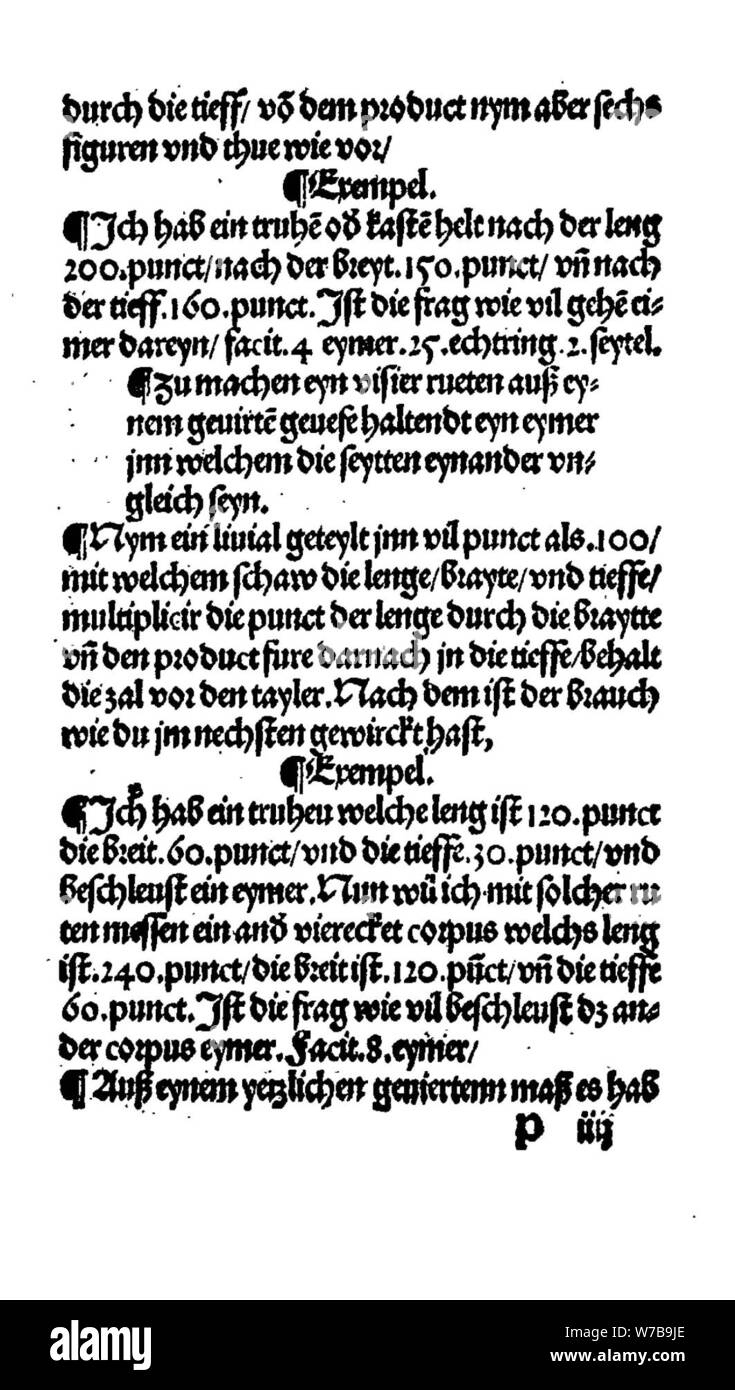 durch die tieff/ võ dem product nym aber sechs
figuren vnd thue wie vor/
¶Exempel.
¶Ich hab ein truhẽ oď kastẽ helt nach der leng
200.punct/nach der breyt.150.punct/ vñ nach
der tieff.160.punct.Ist die frag wie vil gehẽ ei⸗
mer dareyn/ facit.4 eymer.25.echtring.2.seytel.
¶Zu machen eyn visier rueten auß ey⸗
nem geuirtẽ geuese haltendt eyn eymer
jnn welchem die seytten eynander vn⸗
gleich seyn.
¶Nym ein liuial geteylt jnn vil punct als.100/
mit welchem schaw die lenge/brayte/vnd tieffe/
multiplicir die punct der lenge durch die braytte
vñ den product fure darnach jn die tieffe/behalt
die zal vor den tayler.Nach dem ist der brauch
wie du jm nechsten gewirckt hast,
¶Exempel.
¶Ich hab ein truheu welche leng ist 120.punct
die breit.60.punct/vnd die tieffe.30.punct/vnd
beschleust ein eymer.Nun wil ich mit solcher ru
ten messen ein anď vierecket corpus welchs leng
ist.240.punct/die breit ist.120.pũct/vñ die tieffe
60.punct.Ist die frag wie vil beschleust dz an⸗
der corpus eymer.Facit.8.eymer/
¶Auß eynem yetzlichen geuiertenn maß es hab
P iiij
alamy
Image ID: W7B9JE
www.alamy.com